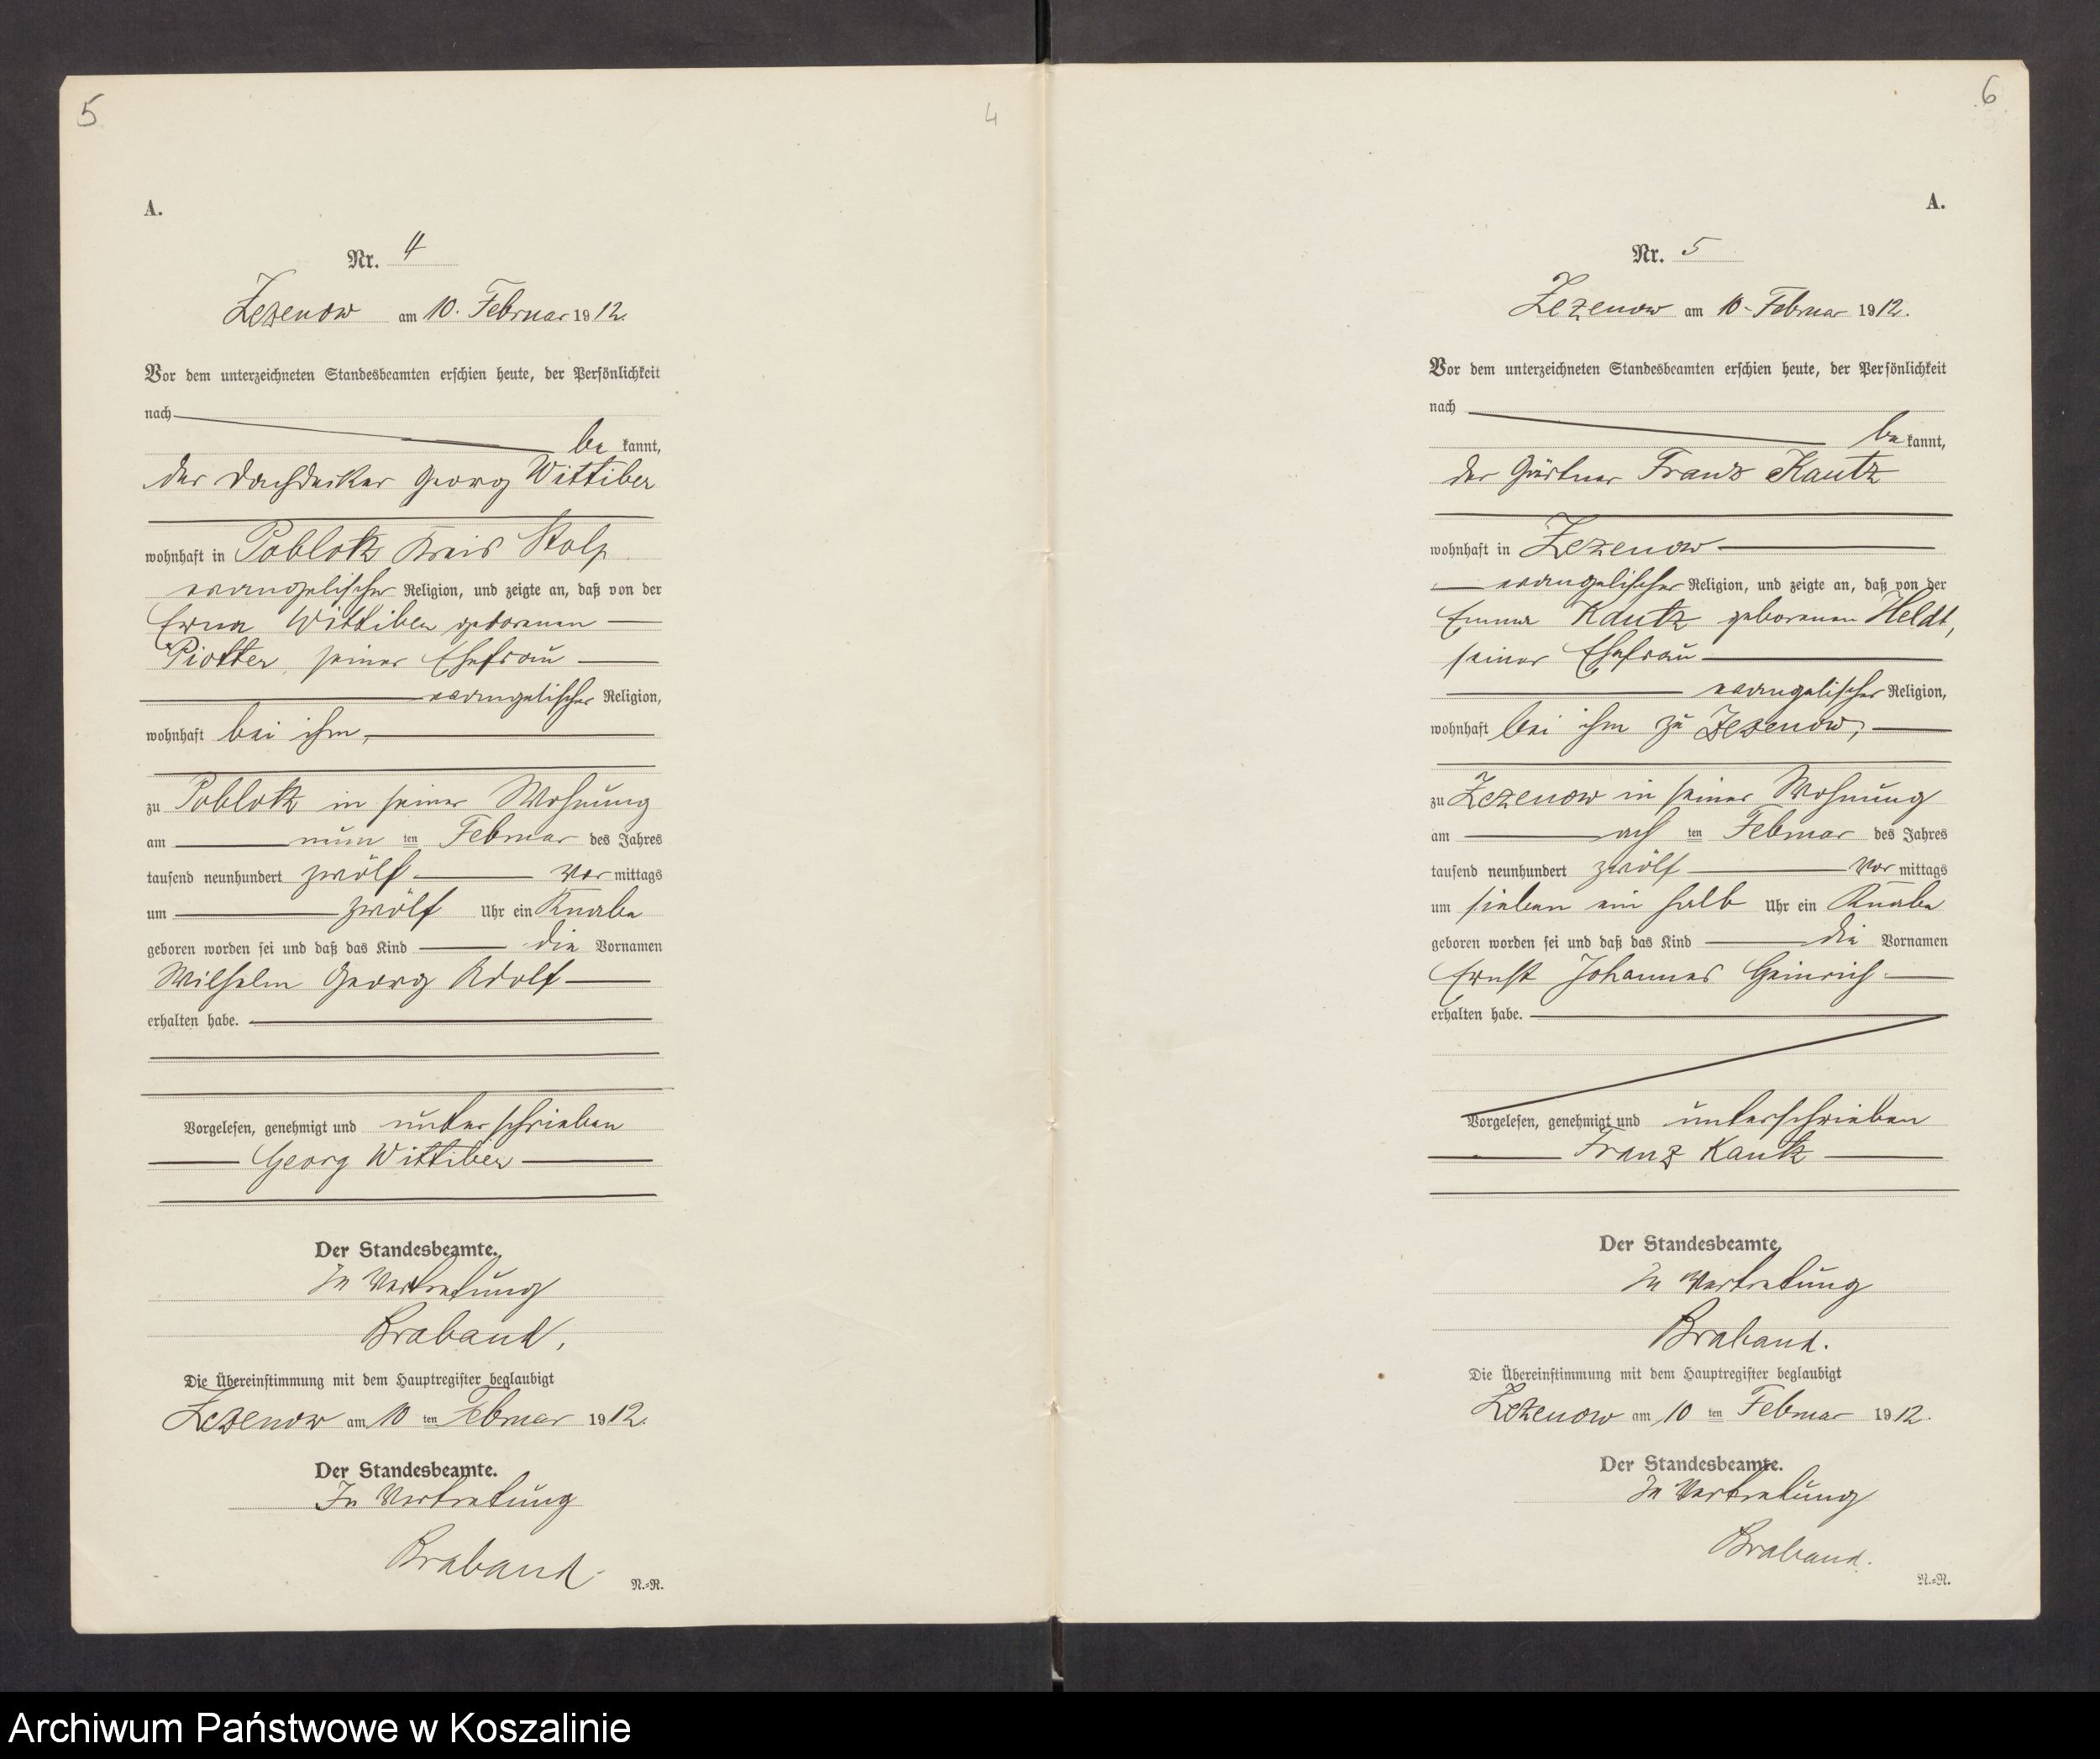 5
4
A.
Nr. 4
Zezenow am 10. Februar 1912.
Vor dem unterzeichneten Standesbeamten erschien heute, der Persönlichkeit
nach
be kannt,
der Dachdecker Georg Wittiber
wohnhaft in Poblotz Kreis Stolp
evangelischer Religion, und zeigte an, daß von der
Erna Wittiber geborenen
Piotter, seiner Ehefrau
evangelischer Religion,
wohnhaft bei ihm,
zu Poblotz in seiner Wohnung
am neun ten Februar des Jahres
tausend neunhundert zwölf Vor mittags
um zwölf Uhr ein Knabe
geboren worden sei und daß das Kind die Vornamen
Wilhelm Georg Adolf
erhalten habe.
Vorgelesen, genehmigt und unterschrieben
Georg Wittiber
Der Standesbeamte.
In Vertretung
Braband.
Die Übereinstimmung mit dem Hauptregister beglaubigt
Zezenow am 10 ten Februar 1912.
Der Standesbeamte.
In Vertretung
Braband.
N.=R.
6
A.
Nr. 5
Zezenow am 10. Februar 1912.
Vor dem unterzeichneten Standesbeamten erschien heute, der Persönlichkeit
nach
be kannt,
der Gärtner Franz Kautz
wohnhaft in Zezenow
evangelischer Religion, und zeigte an, daß von der
Emma Kautz geborenen Heldt,
seiner Ehefrau
evangelischer Religion,
wohnhaft bei ihm zu Zezenow,
zu Zezenow in seiner Wohnung
am ach ten Februar des Jahres
tausend neunhundert zwölf Vor mittags
um sieben ein halb Uhr ein Knabe
geboren worden sei und daß das Kind die Vornamen
Ernst Johannes Heinrich
erhalten habe.
Vorgelesen, genehmigt und unterschrieben
Franz Kautz
Der Standesbeamte
In Vertretung
Braband.
Die Übereinstimmung mit dem Hauptregister beglaubigt
Zezenow am 10 ten Februar 1912.
Der Standesbeamte.
In Vertretung
Braband.
N.=R.
Archiwum Państwowe w Koszalinie